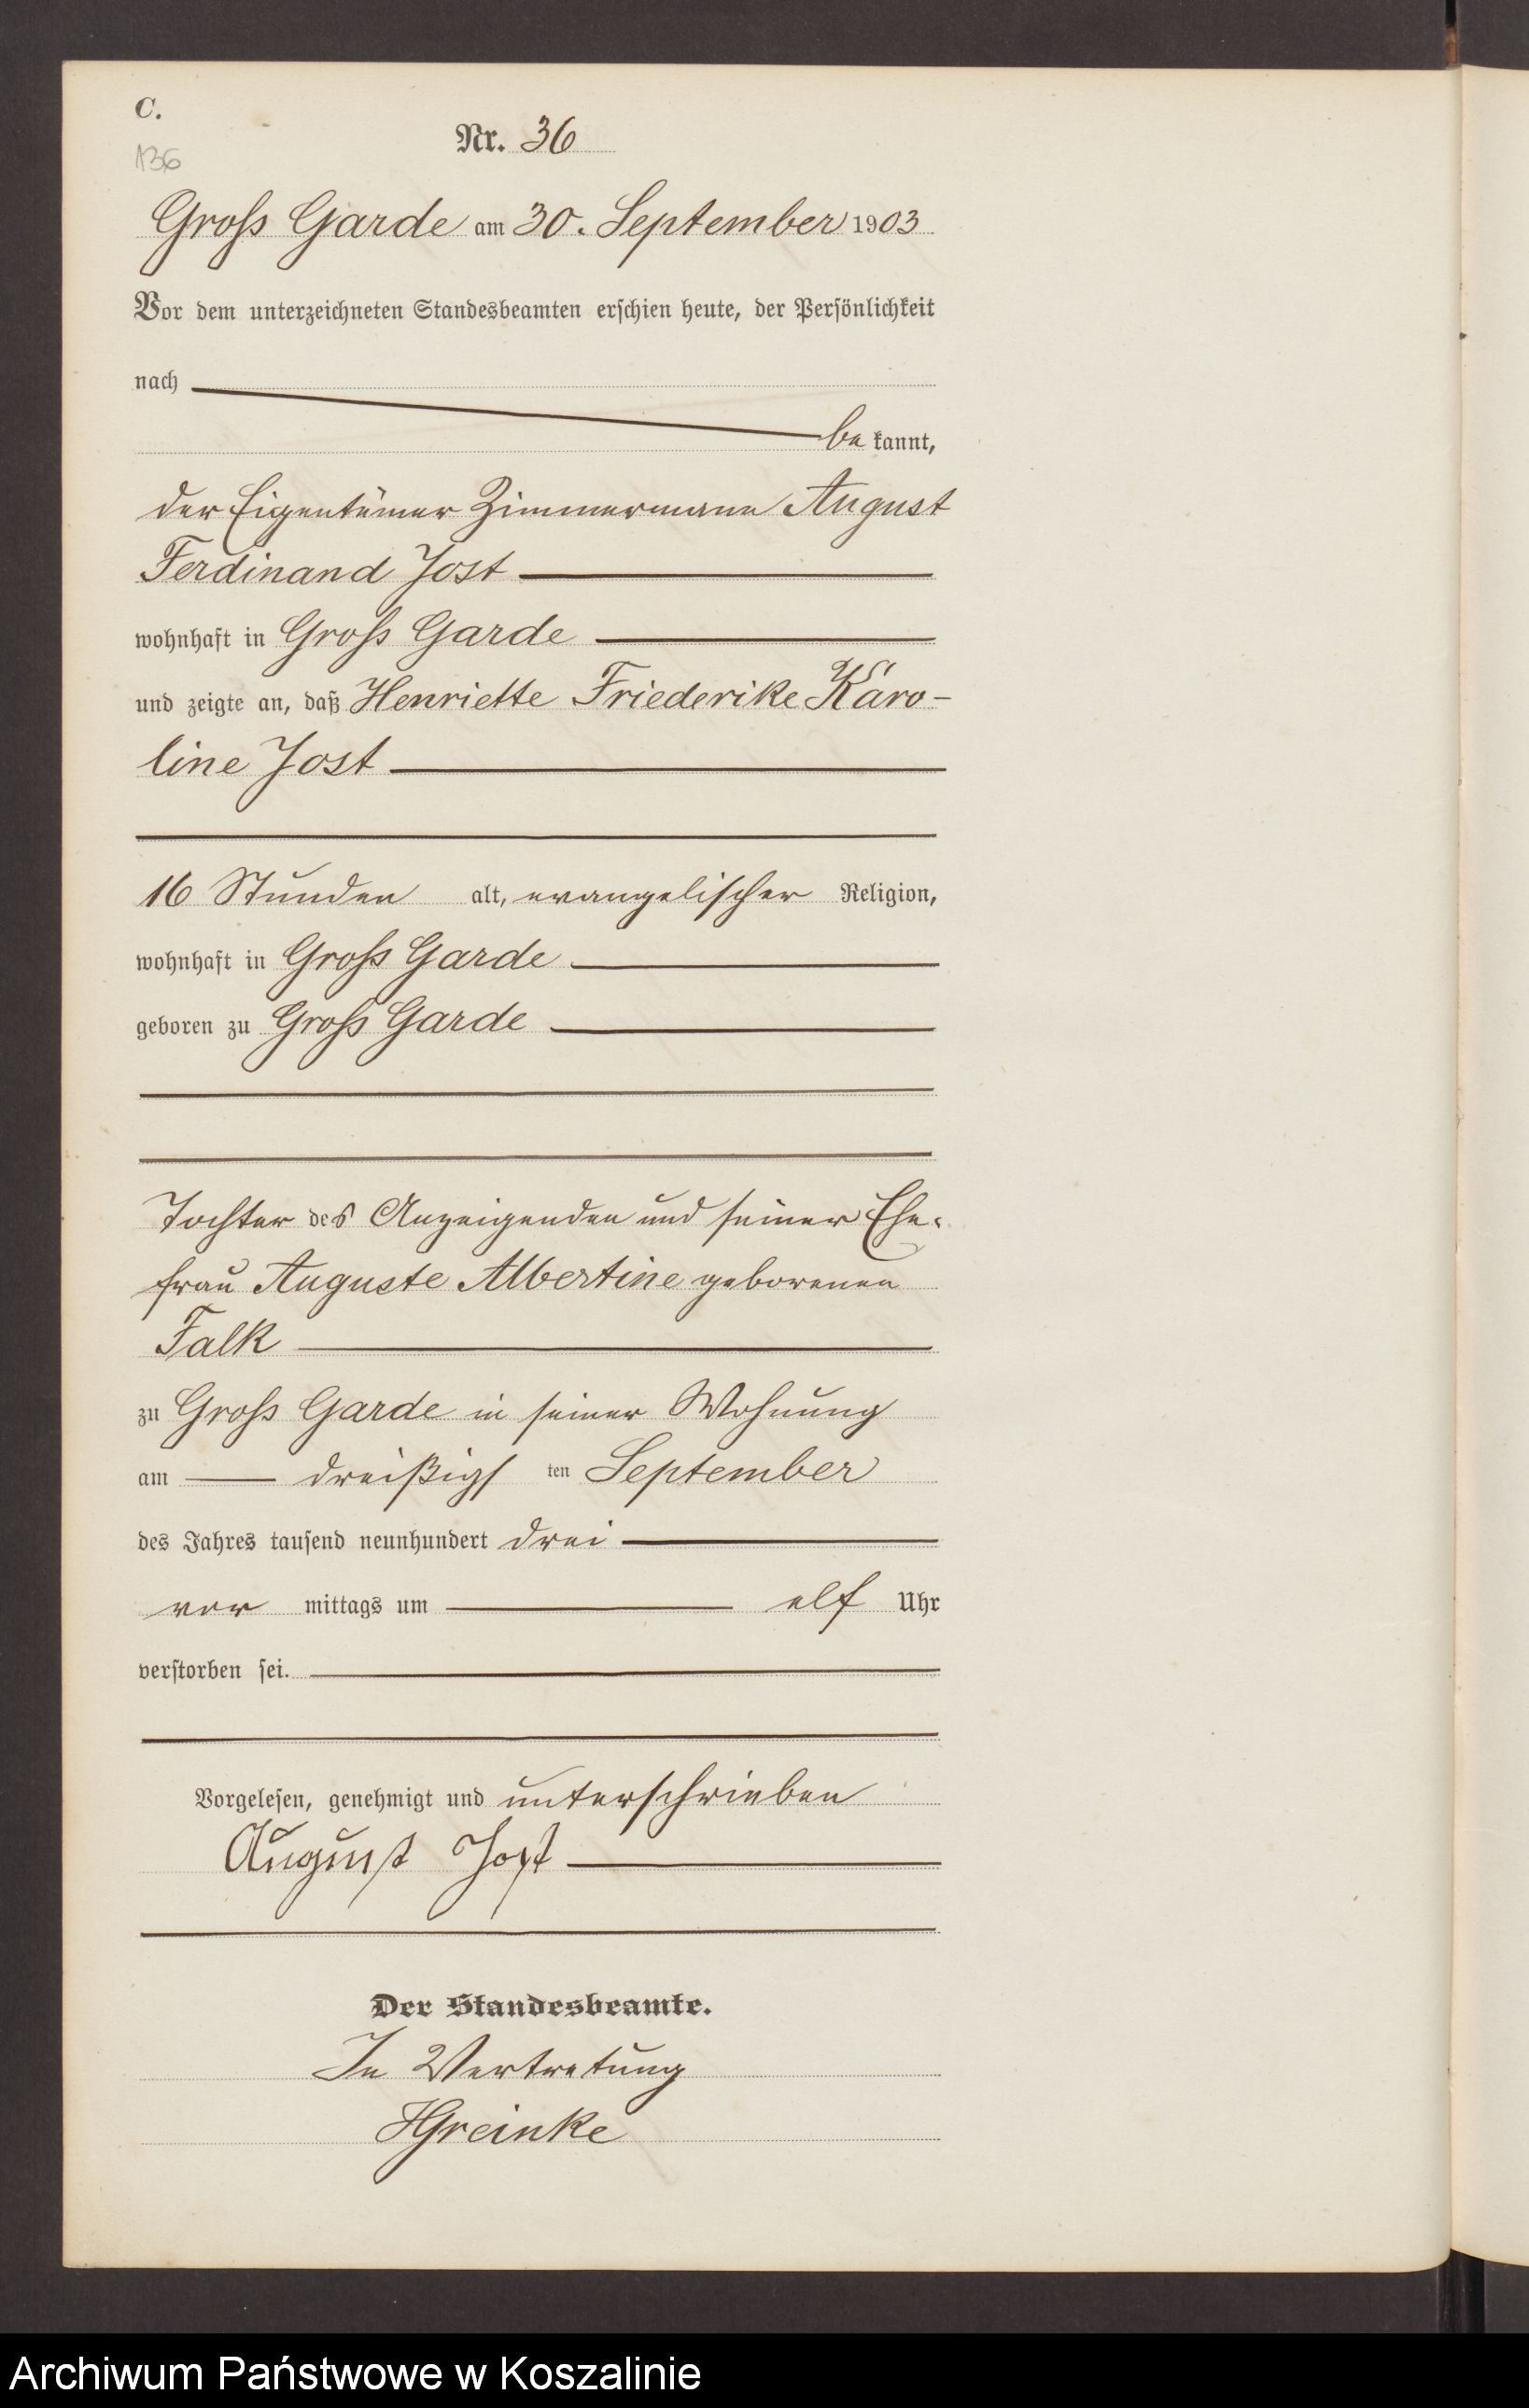 C.
136
Nr. 36
Groß Garde am 30. September 1903
Vor dem unterzeichneten Standesbeamten erschien heute, der Persönlichkeit
nach
be kannt,
der Eigentümer Zimmermann August
Ferdinand Jost
wohnhaft in Groß Garde
und zeigte an, daß Henriette Friederike Karo-
line Jost
16 Stunden alt, evangelischer Religion,
wohnhaft in Groß Garde
geboren zu Groß Garde
Tochter des Anzeigenden und seiner Ehe-
frau Auguste Albertine geborenen
Falk
zu Groß Garde in seiner Wohnung
am dreißigs ten September
des Jahres tausend neunhundert drei
vor mittags um elf Uhr
verstorben sei.
Vorgelesen, genehmigt und unterschrieben
August Jost
Der Standesbeamte.
In Vertretung
HGreinke
Archiwum Państwowe w Koszalinie